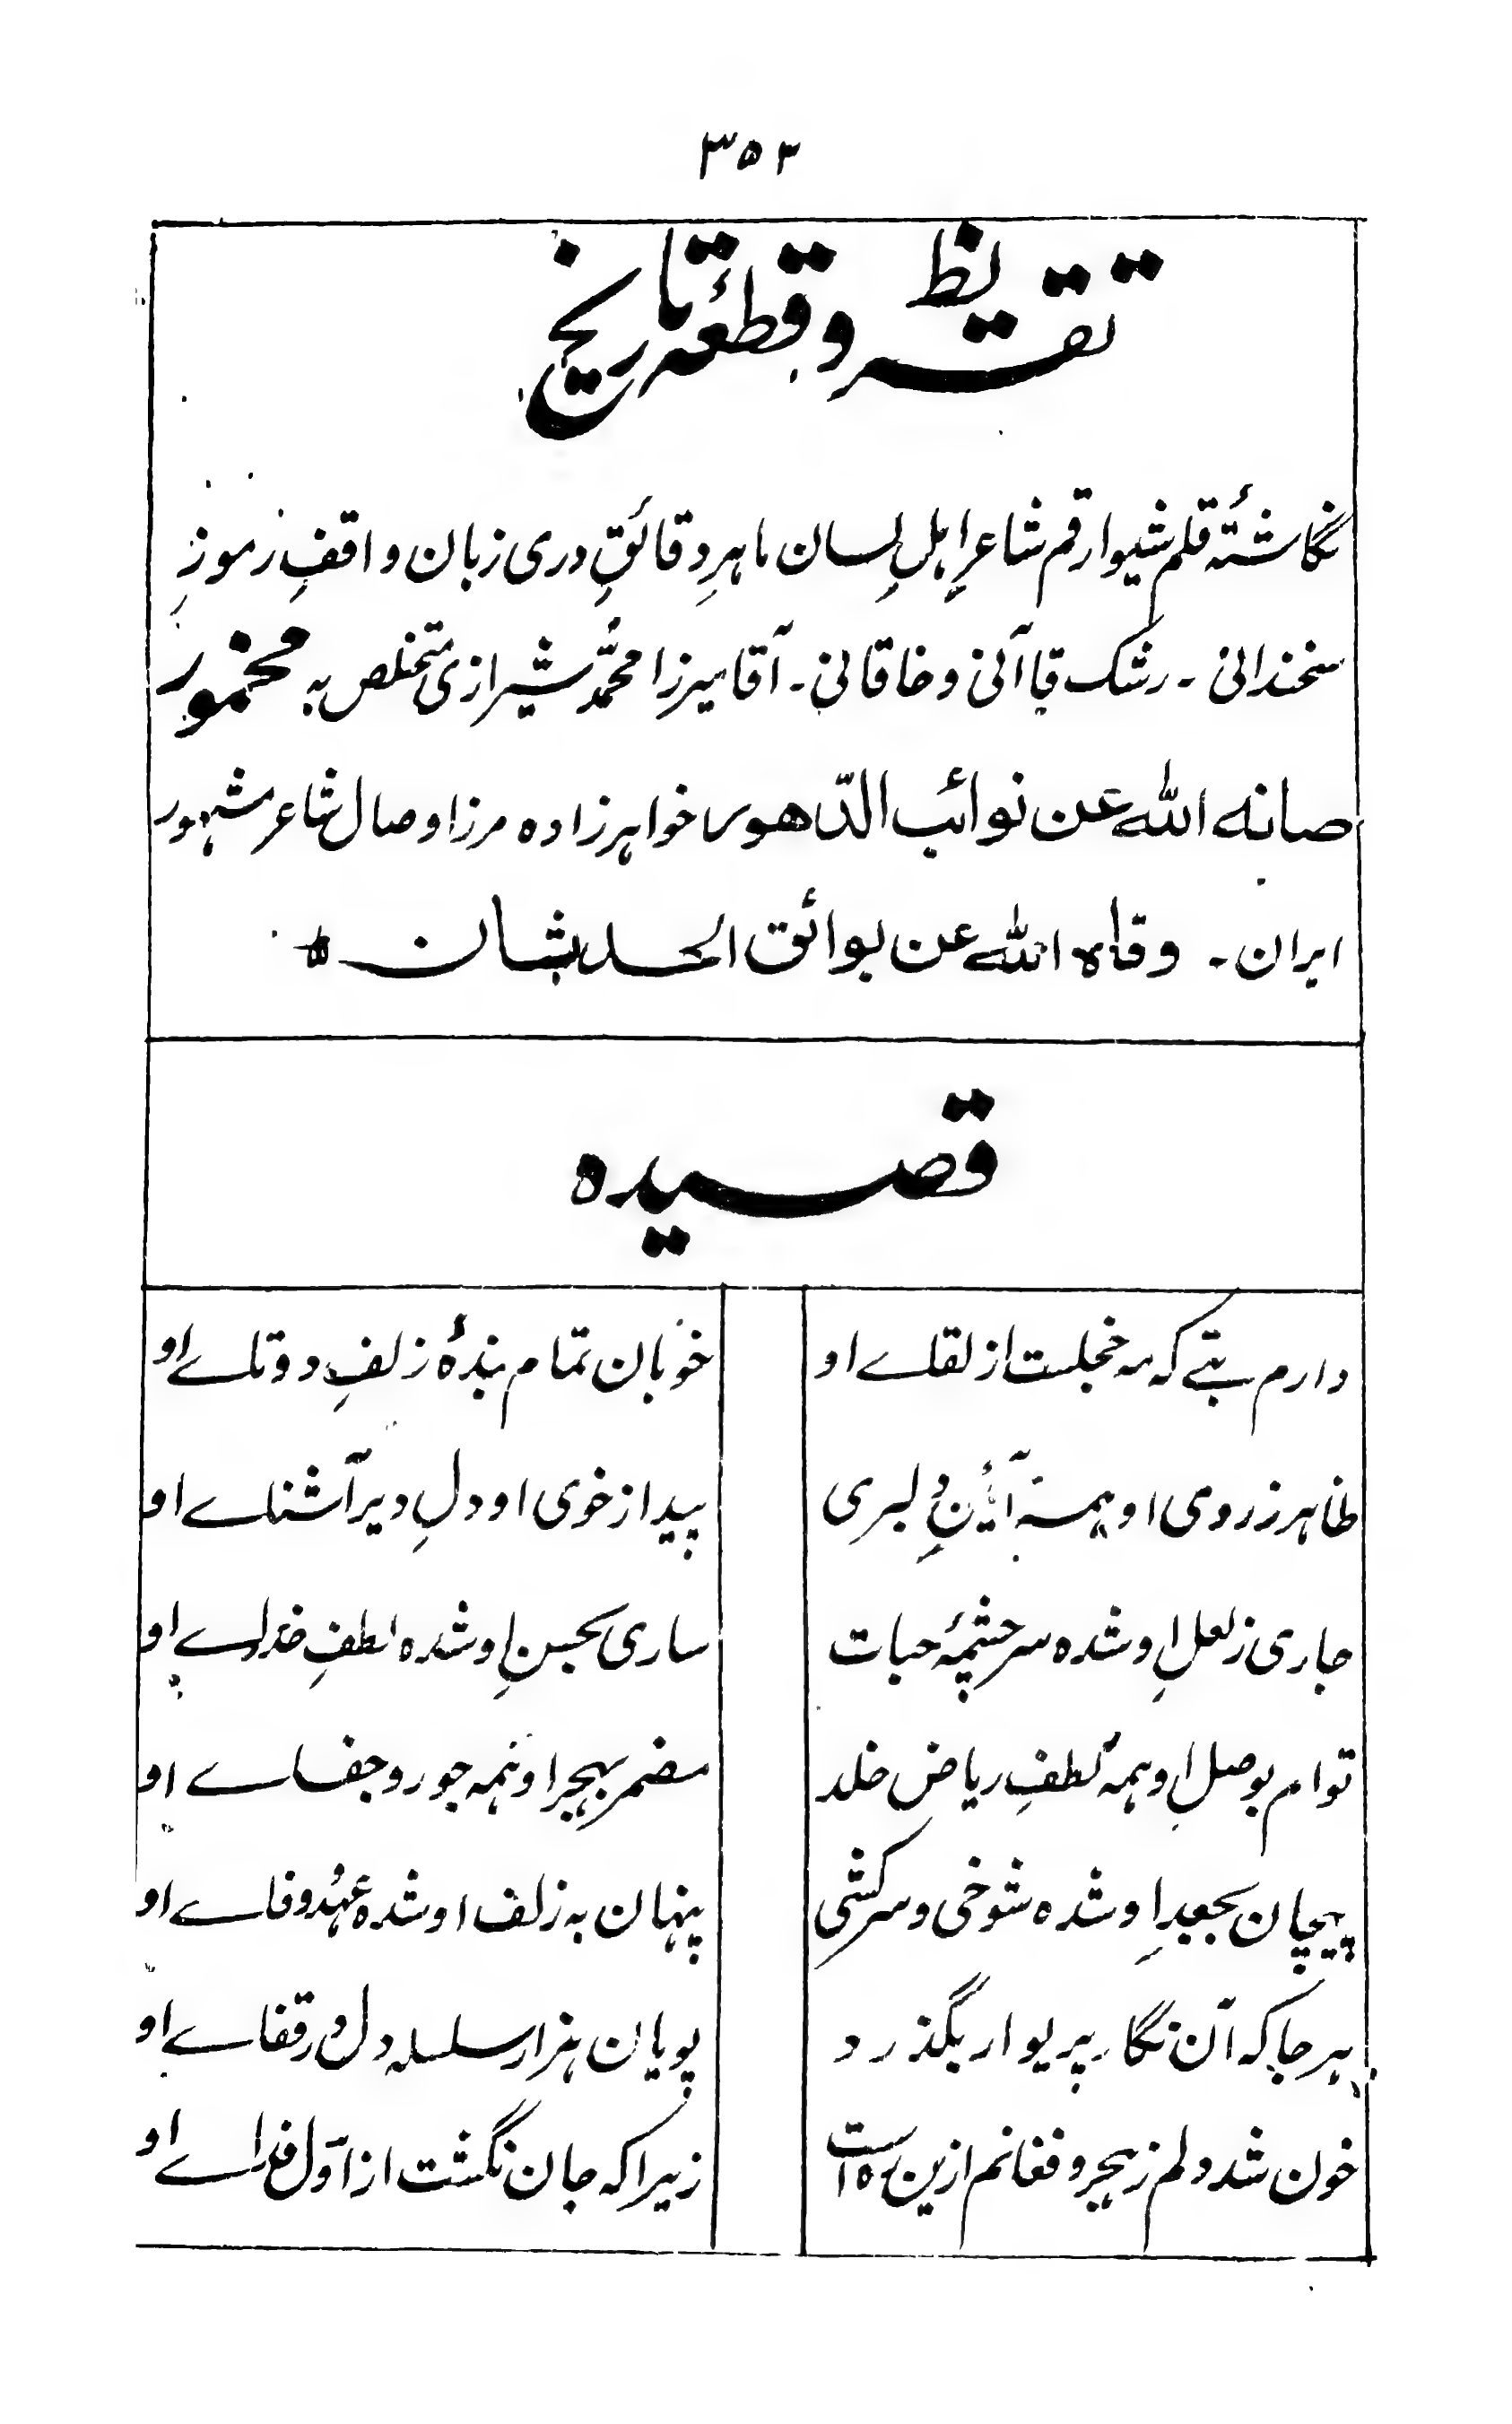 ۳۵۳
تقریظ و قطعۂ تاریخ
نگاشتۂ قلم شیوا رقم شاعرِ اہلِ لِسان ماہرِ دقائقِ دری زبان واقفِ رموزِ
سخندانی ۔ رشک قاآنی و خاقانی ۔ آقا میرزا محمّد شیرازی متخلص بہ مخمور
صانہ اللہ عن نوائب الدّھور خواہرزادہ مرزا وصال شاعر مشہور
ایران ۔ وقاہ اللہ عن بوائق الحدثان
قصیدہ
دارم بتے کہ مہ خجلست از لقاے او
خوبان تمام بندۂ زلفِ دوتاے او
ظاہر ز روی او ہمہ آئینِ دلبری
پیدا ز خوی او دلِ دیر آشناے او
جاری ز لعلِ او شدہ سرچشمۂ حیات
ساری بحسنِ او شدہ لطفِ خداے او
توام بوصلِ او ہمہ لطفِ ریاضِ خلد
مضمر بہجر او ہمہ جور و جفاے او
پیچان بجعدِ او شدہ شوخی و سرکشی
پنہان بہ زلف او شدہ عہد و وفاے او
ہر جا کہ آن نگار پریوار بگذرد
پویان ہزار سلسلہ دل در قفاے او
خون شد دلم ز ہجر و فغانم ازین رہ است
زیرا کہ جان نگشت از اوّل فداے او